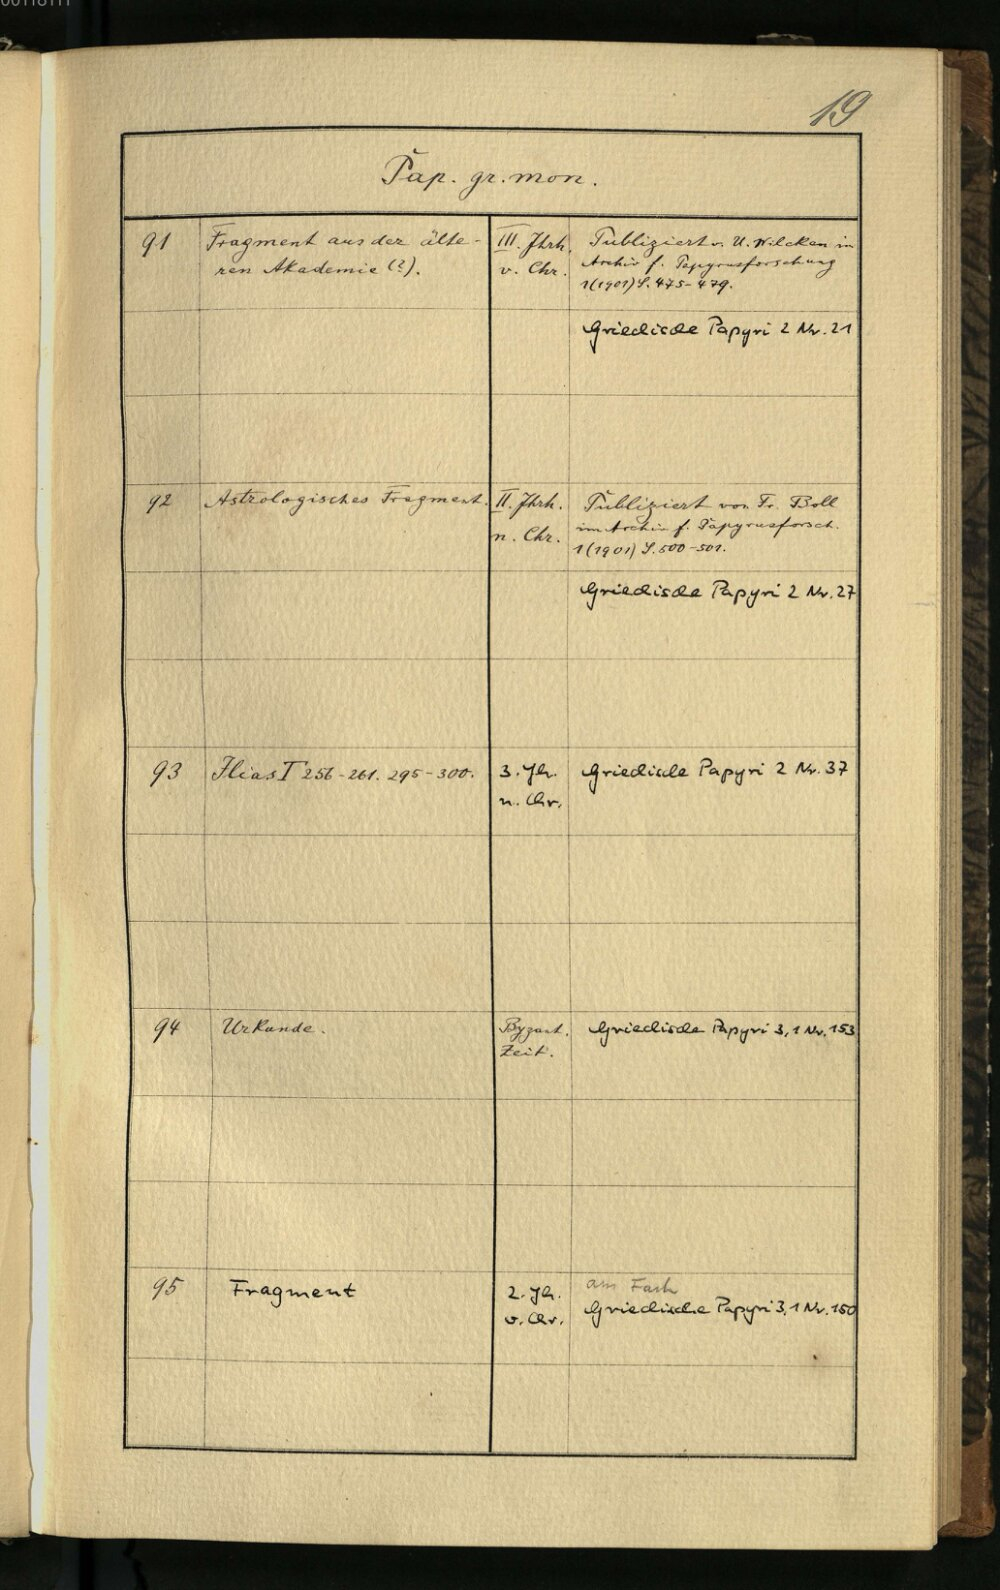 19
Pap. gr. mon.
91 Fragment aus der älte- III. Jhrh. Publiziert v. U. Wilcken in
ren Akademie (?). v. Chr. Archiv f. Papyrusforschung
1 (1901) S. 475-479.
Griechische Papyri 2 Nr. 21
92 Astrologisches Fragment. II. Jhrh. Publiziert von Fr. Boll
n. Chr. im Archiv f. Papyrusforsch.
1 (1901) S. 500-501.
Griechische Papyri 2 Nr. 27
93 Ilias 256-261. 295-300. 3. Jh. Griechische Papyri 2 Nr. 37
n. Chr.
94 Urkunde. Byzant. Griechische Papyri 3,1 Nr. 153
Zeit.
95 Fragment 2. Jh. am Fach
v. Chr. Griechische Papyri 3,1 Nr. 150